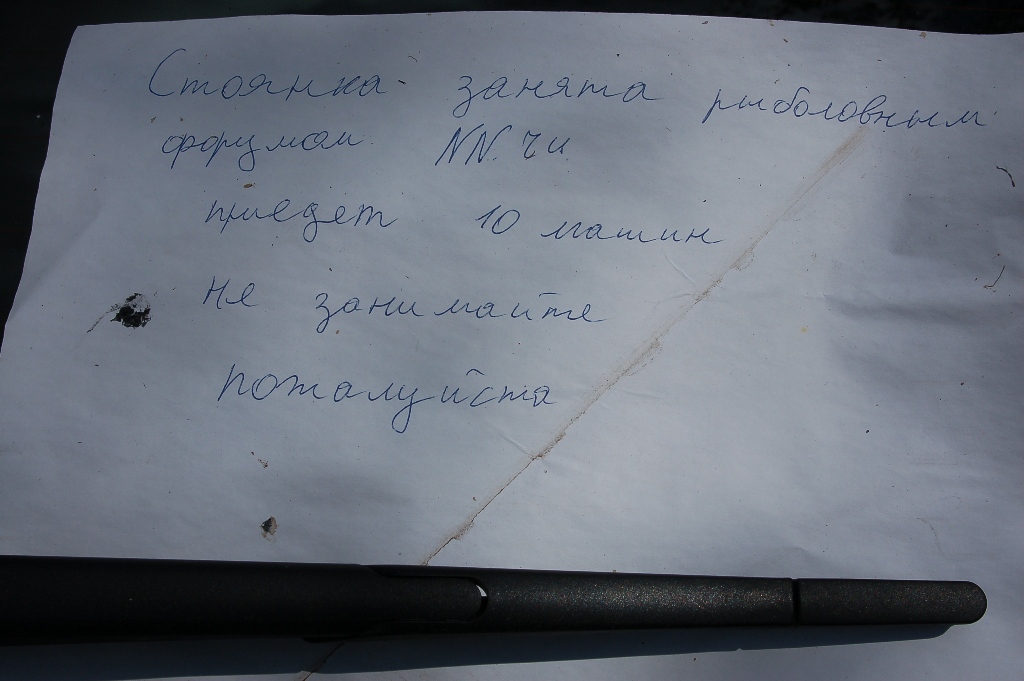 Стоянка занята рыболовным
форумом NN.ru
приедет 10 машин
не занимайте
пожалуйста